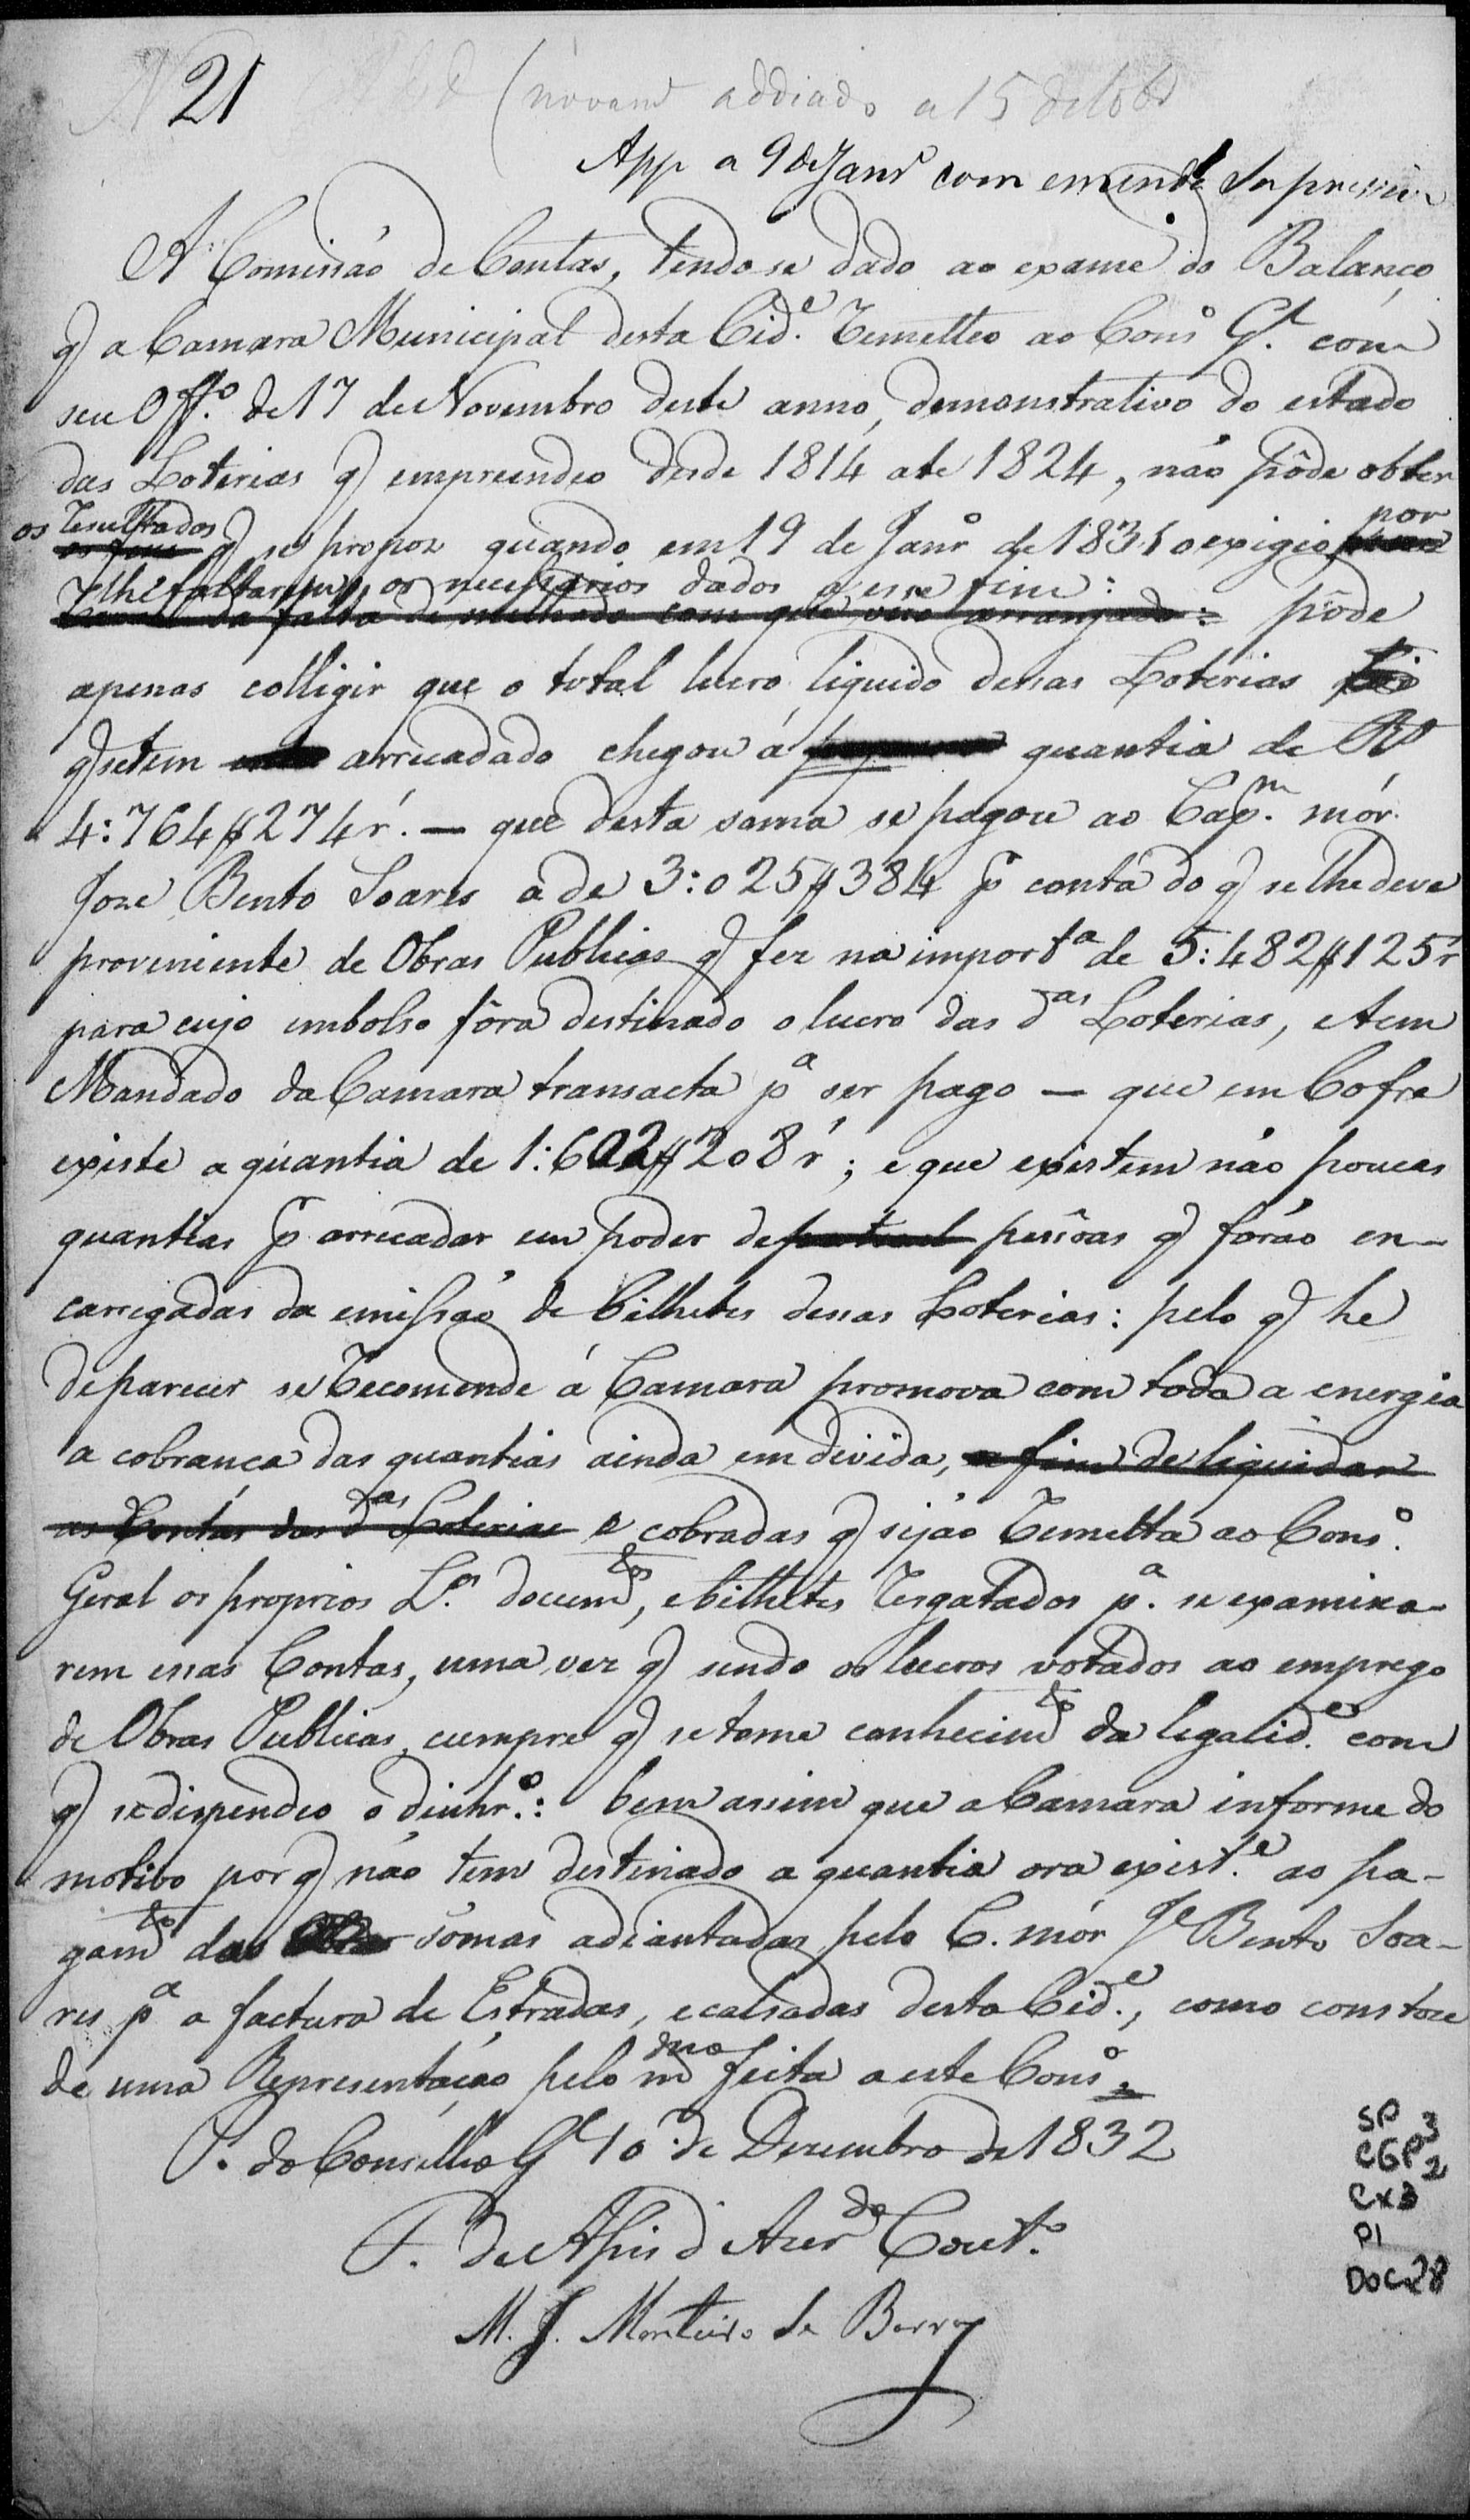 21 (novam.e addiado a 15 de
App a 9 de Janr.o com emenda
A Comissão de Contas, tendo se dado ao exame do Balanço
q a Camara Municipal desta Cid.e remetteo ao Cons.o G.l com
seu Off.o de 17 de Novembro deste anno, demonstrativo do estado
das Loterias q empreendeo desde 1814 ate 1824, não pôde obter
os resultados q se propoz quando em 19 de Janr.o de 1831 o exigio por
lhe faltarem os necessarios dados a esse fim:
da falta de methodo com que veio arranjado: pôde
apenas colligir que o total lucro liquido dessas Loterias
q se tem arrecadado chegou á quantia de Rs
4:764$274 r.s — que desta soma se pagou ao Cap.m mór
Joze Bento Soares a de 3:025$384 p.r conta do q se lhe deve
proveniente de Obras Publicas q fez na import.a de 5:482$125 r
para cujo embolso fôra destinado o lucro das d.as Loterias, e tem
Mandado da Camara transacta p.a ser pago — que em Cofre
existe a quantia de 1:602$208 r; e que existem não poucas
quantias p.r arrecadar em poder de pessôas q forão en-
carregadas da emissão de bilhetes dessas Loterias: pelo q he
de parecer se recomende á Camara promova com toda a energia
a cobrança das quantias ainda em divida, a fim de liquidar
as Contas das d.as Loterias e cobradas q sejão remetta ao Cons.o
Geral os proprios L.os docum.tos, e bilhetes resgatados p.a se examina-
rem essas Contas, uma vez q sendo os lucros votados ao emprego
de Obras Publicas, cumpre q se tome conhecim.to da legalid.e com
q se dispendeo o dinhr.o: bem assim que a Camara informe do
motivo por q não tem destinado a quantia ora exist.e ao pa-
gam.to das somas adiantadas pelo C. mór J.e Bento Soa-
res p.a a factura de Estradas, e calsadas desta Cid.e, como consta
de uma Representação pelo m.mo feita a este Cons.o
P. do Conselho G.l 10 de Dezembro de 1832
F. de Assis d Azer.do Cout.o
M. J. Monteiro de Barros
SP 3
CGP 2
CX3
P1
DOC 28